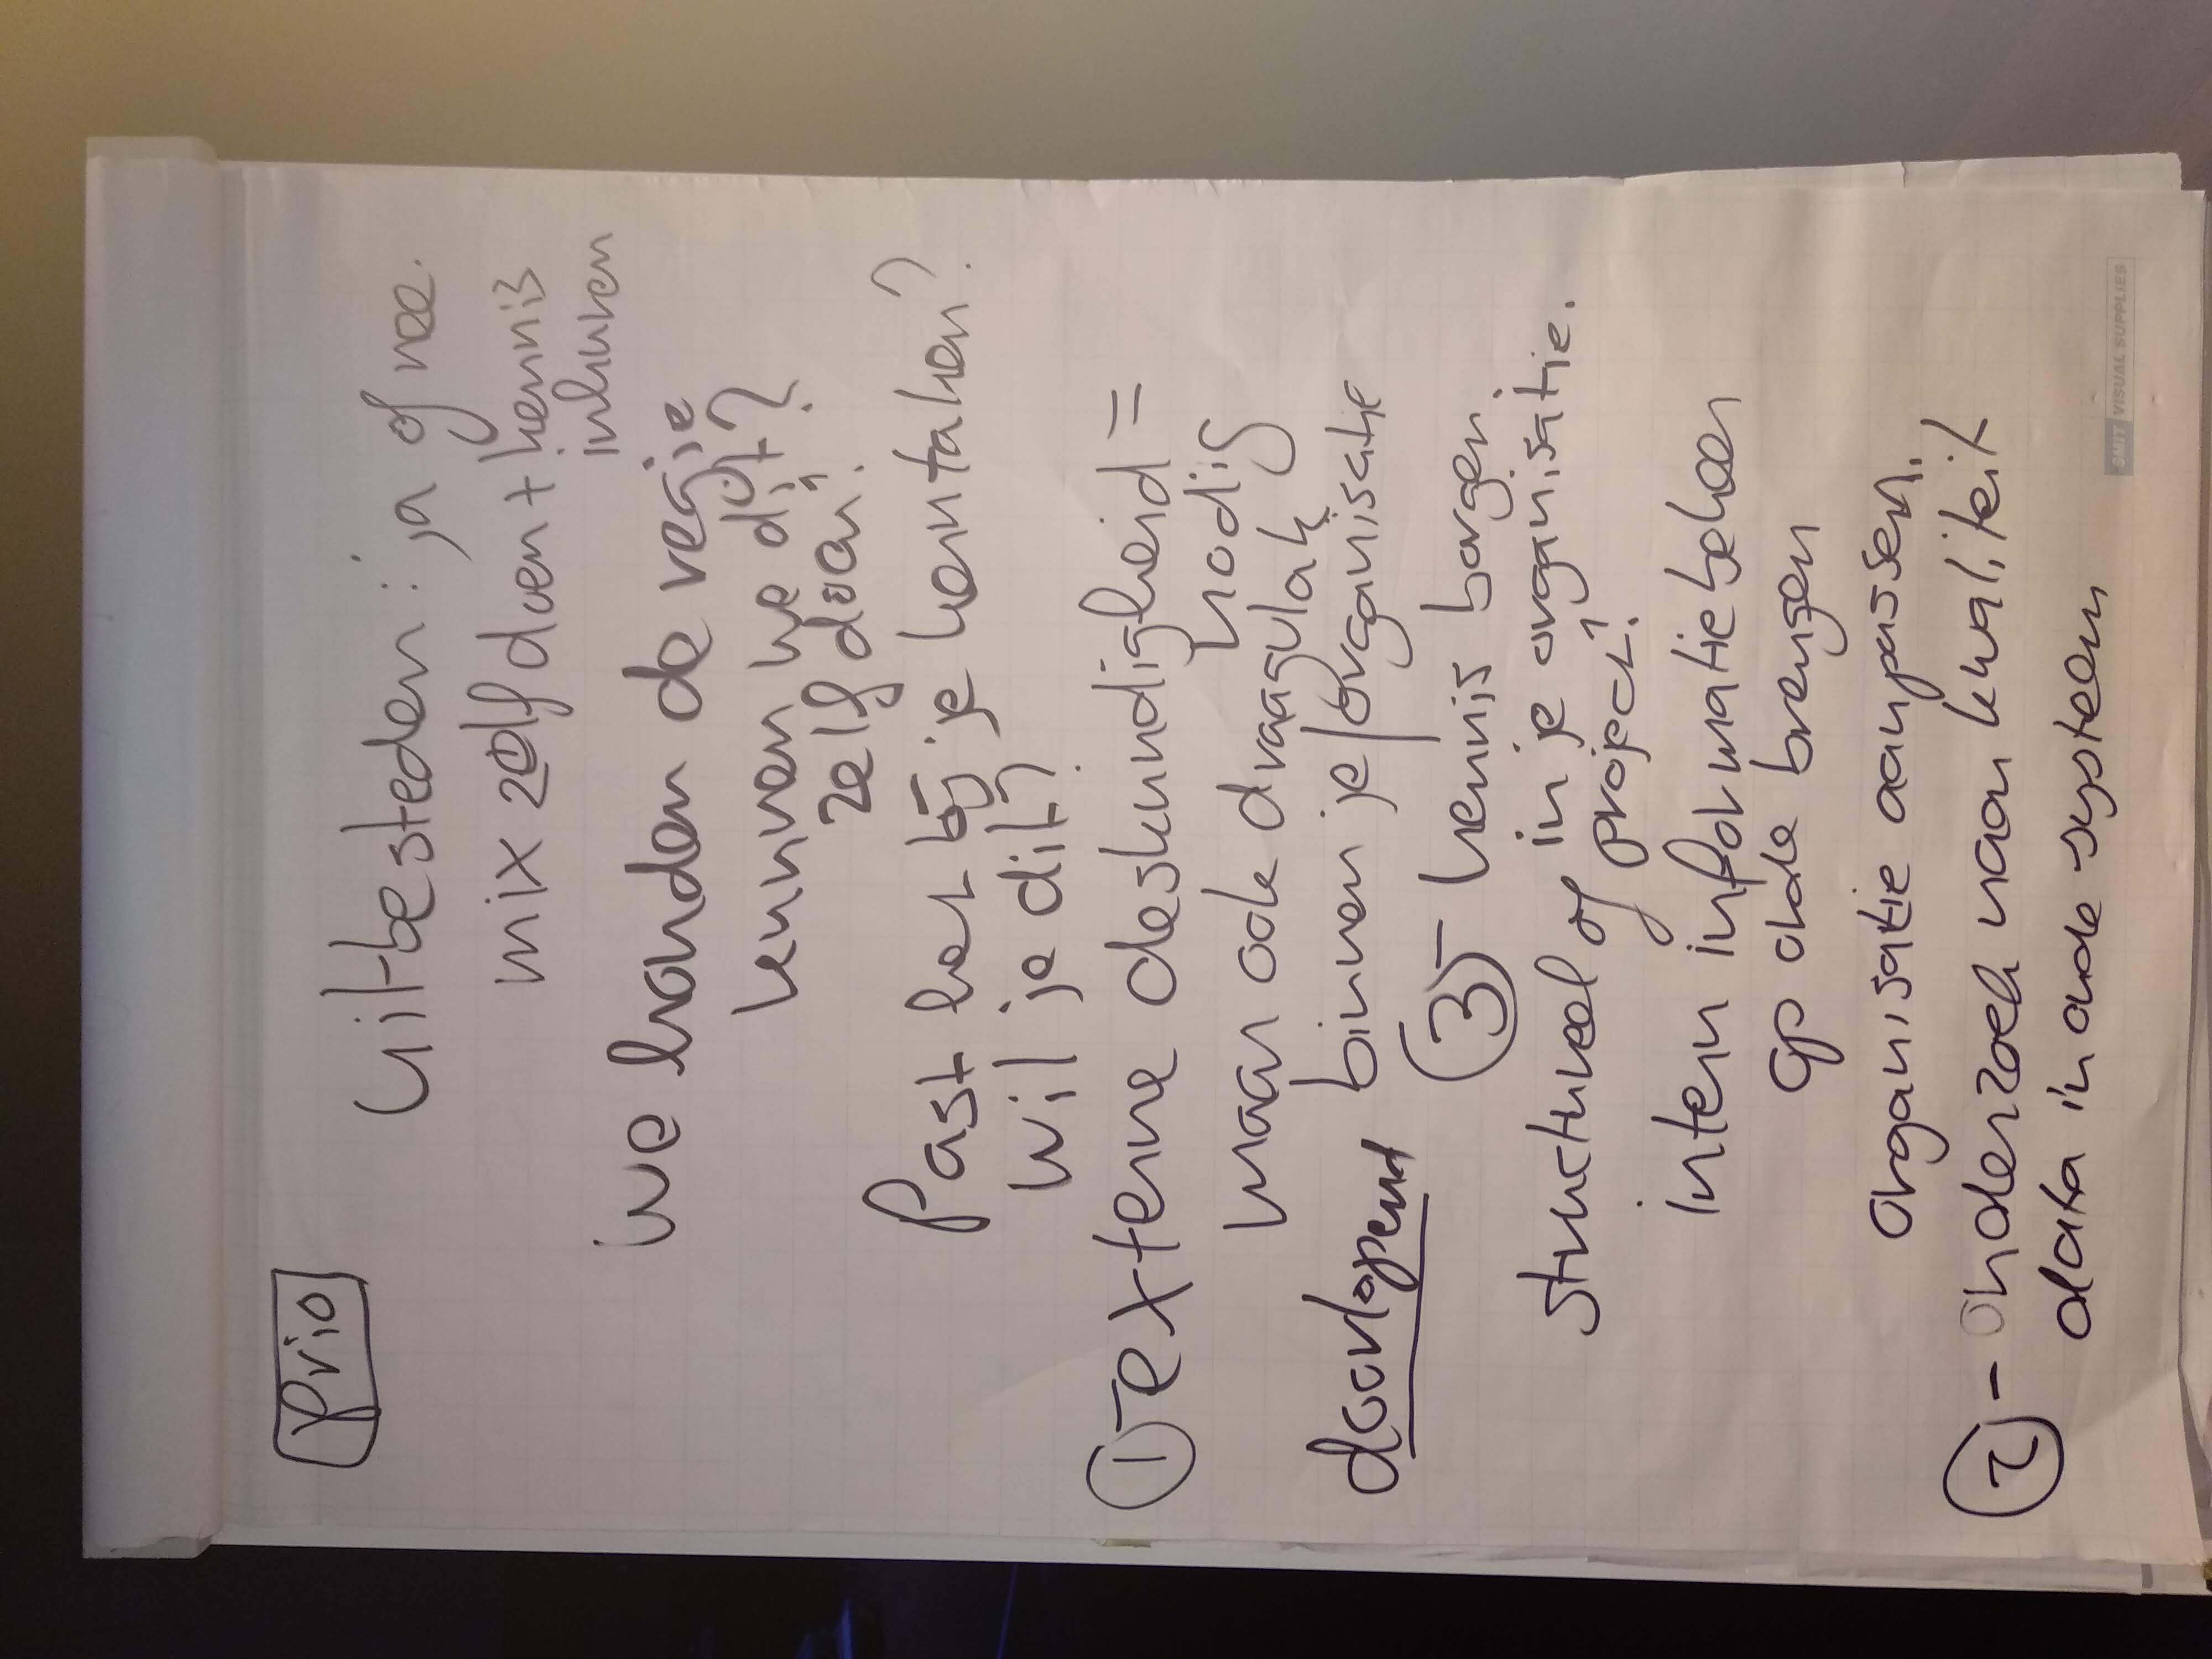 Prio
Uitbesteden: ja of nee.
mix zelf doen + kennis
inhuren
We houden de regie
kunnen we dit?
zelf doen?
Past het bij je kerntaken?
wil je dit?
① - externe deskundigheid =
nodig
maar ook draagvlak
binnen je organisatie
doorlopend
③ - kennis borgen
in je organisatie.
structureel of project?
intern informatiebeheer
op orde brengen
organisatie aanpassen.
② - onderzoek naar kwaliteit
data in oude systeem
SMIT VISUAL SUPPLIES